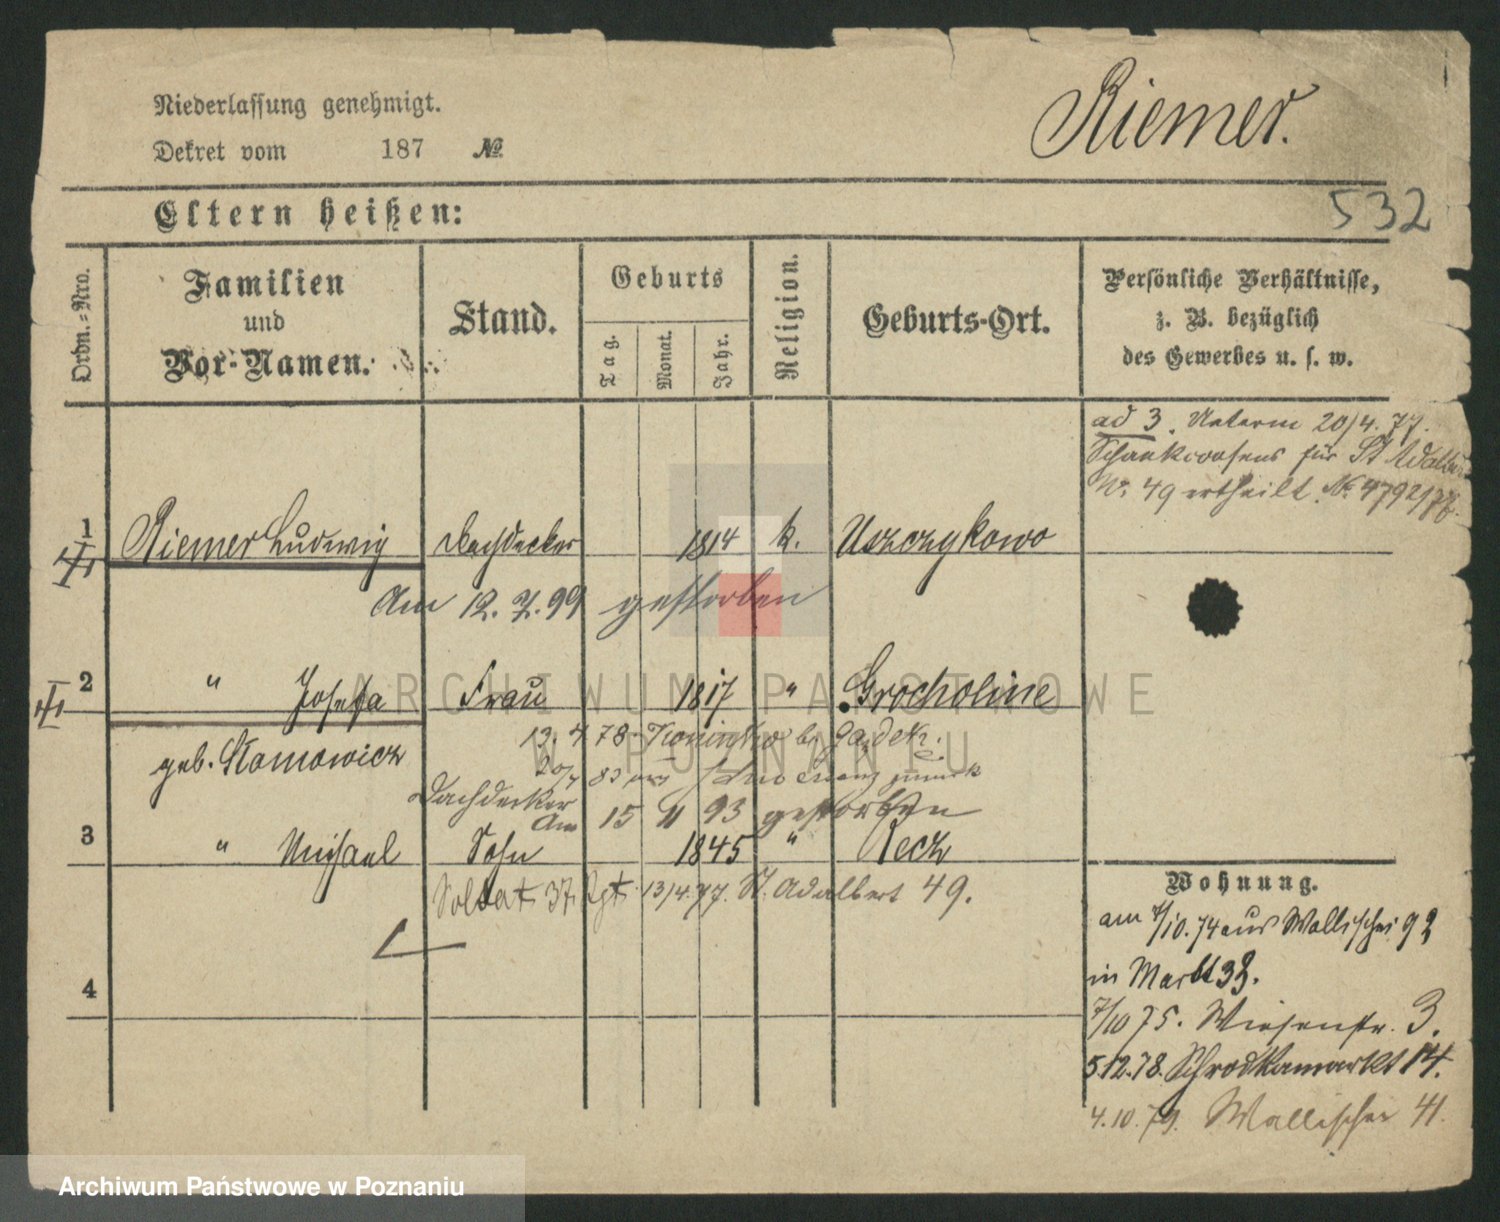 Niederlassung genehmigt.
Dekret vom 187 №
Riemer.
532
Eltern heißen:
Ordn.-Nro.
Familien
und
Vor-Namen.
Stand.
Geburts
Tag.
Monat.
Jahr.
Religion.
Geburts-Ort.
Persönliche Verhältnisse,
z. B. bezüglich
des Gewerbes u. s. w.
ad 3. Unterm 20/4. 77.
für St Adalbert
No. 49 ertheilt. No. 4792/77.
1 Riemer Ludwig Dachdecker 1814 k. Uszczykowo
Am 12. 7. 99 gestorben
2 " Josefa Frau 1817 " Grocholine
geb. Slomowicz
13. 4 78
83
Dachdecker
Am 15 11 93 gestorben
3 " Michael Sohn 1845 " Recz
Soldat 37. Rgt. 13/4. 77. St. Adalbert 49.
4
Wohnung.
am 7/10. 74 aus Wallischei 92
in Markt 38.
7/10 75. Wiesenstr. 3.
5.12.78. Schrodkamarkt 14.
4.10.79. Wallischei 41.
ARCHIWUM PAŃSTWOWE
W POZNANIU
Archiwum Państwowe w Poznaniu